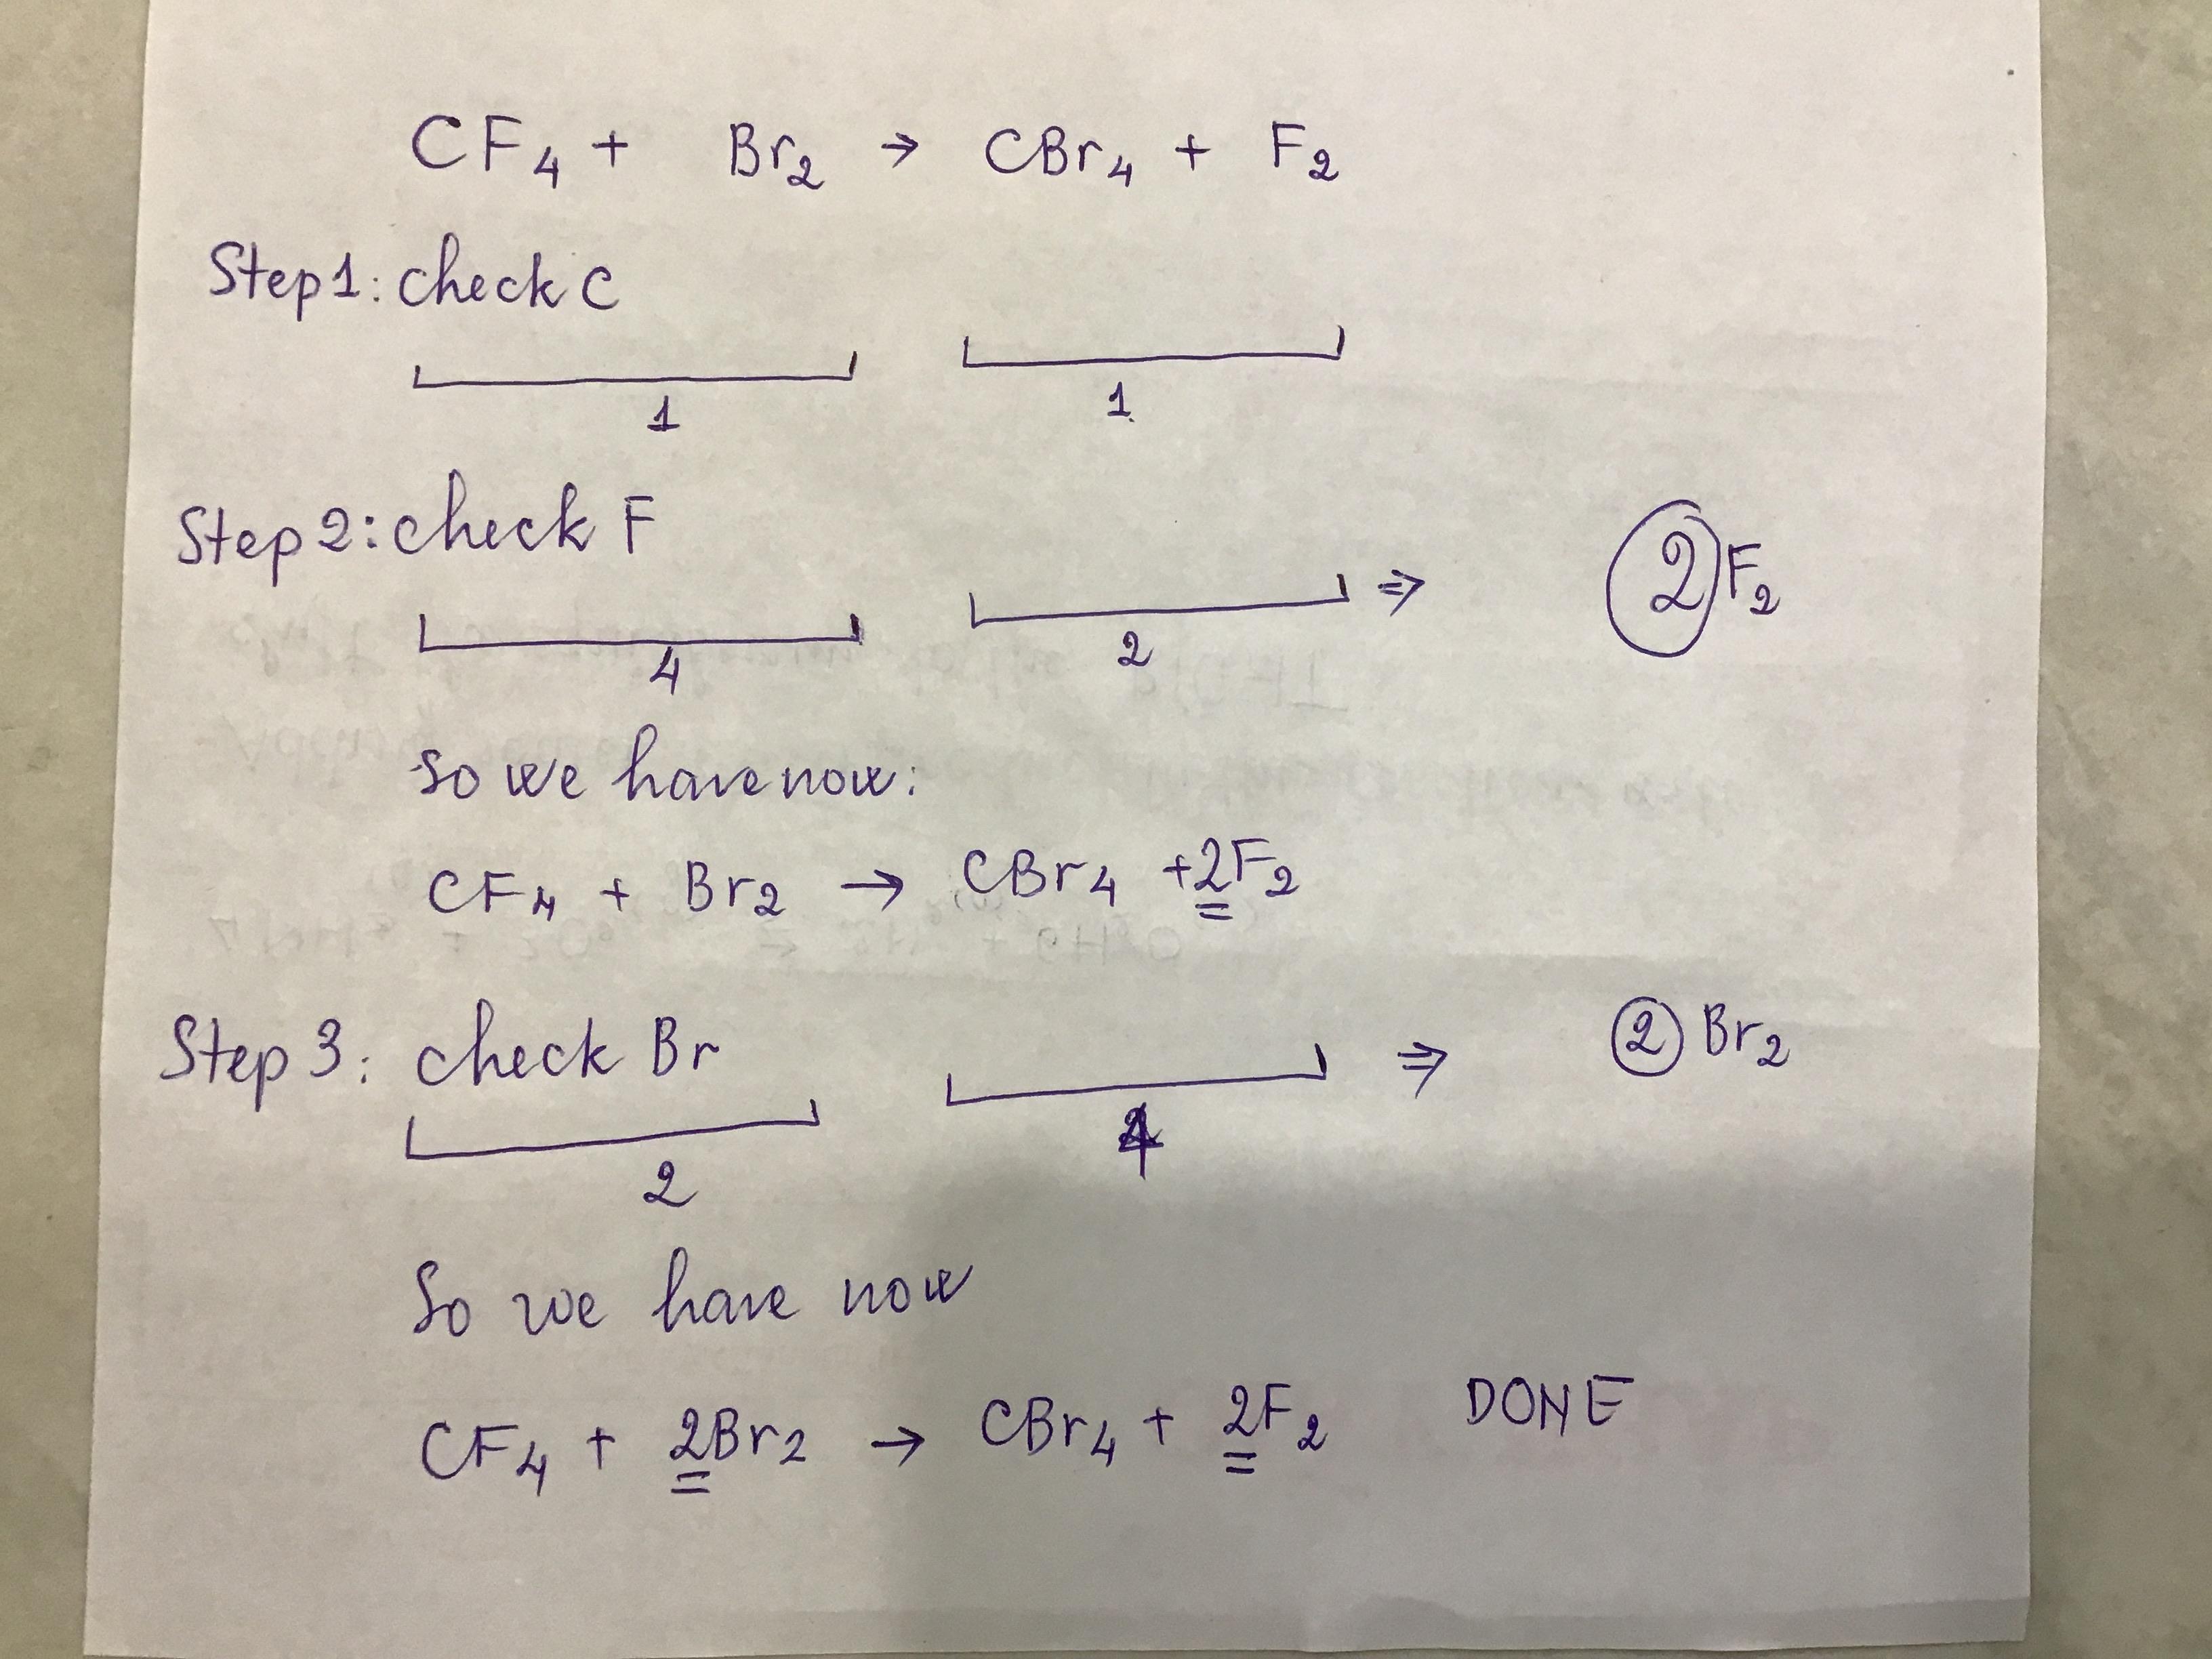 CF₄ + Br₂ → CBr₄ + F₂
Step 1: check C
1 1
Step 2: check F
4 2 ⇒ 2 F₂
So we have now:
CF₄ + Br₂ → CBr₄ + 2F₂
Step 3: check Br
2 4 ⇒ 2 Br₂
So we have now
CF₄ + 2Br₂ → CBr₄ + 2F₂ DONE